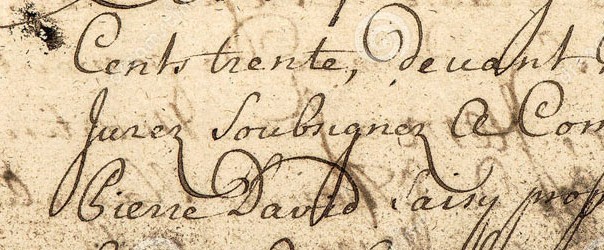 Cents trente, devant
Jurez Soubsignez & Com
Pierre David Saisy prop